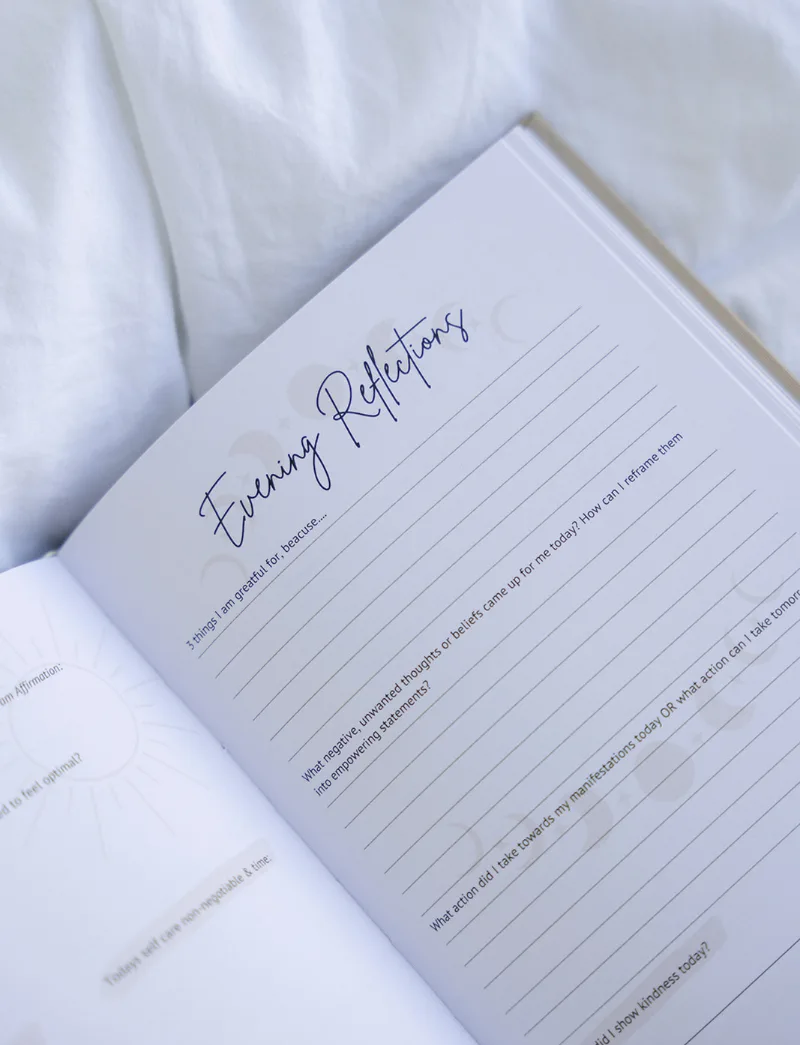 am Affirmation:
d to feel optimal?
Todays self care non-negotiable & time:
Evening Reflections
3 things I am greatful for, beacuse....
What negative, unwanted thoughts or beliefs came up for me today? How can I reframe them
into empowering statements?
What action did I take towards my manifestations today OR what action can I take
did I show kindness today?